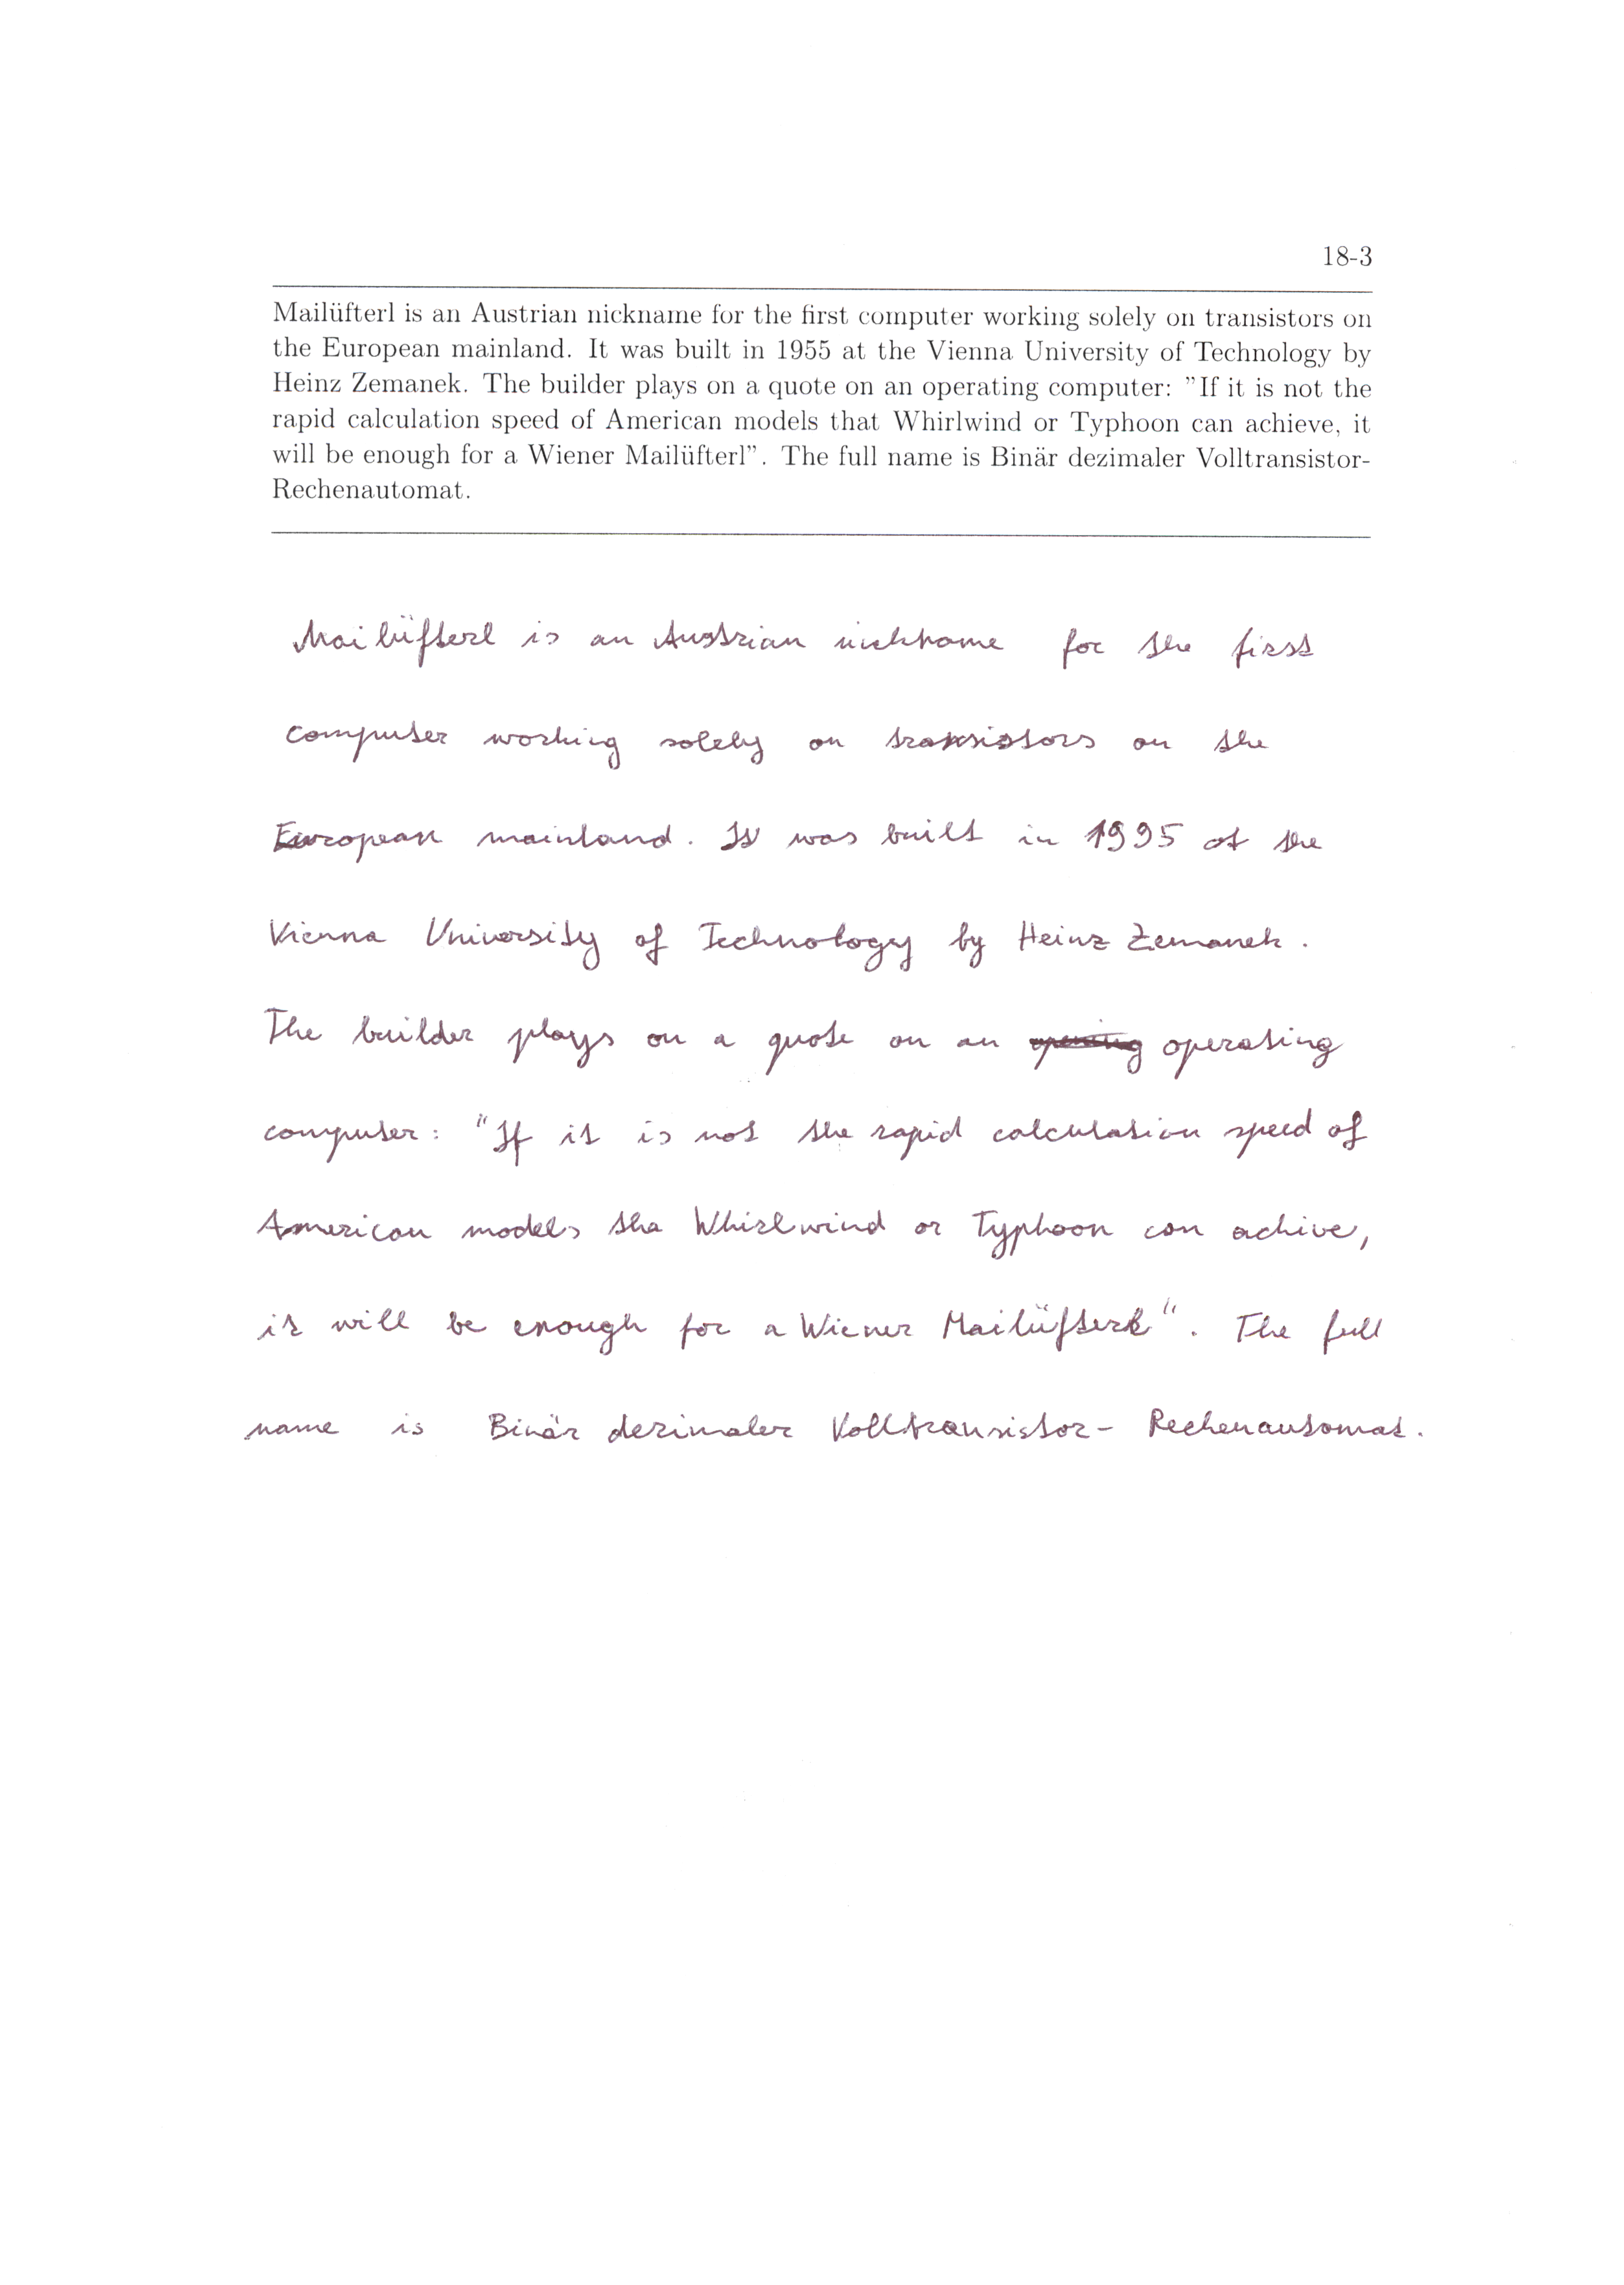 18-3
Mailüfterl is an Austrian nickname for the first computer working solely on transistors on
the European mainland. It was built in 1955 at the Vienna University of Technology by
Heinz Zemanek. The builder plays on a quote on an operating computer: "If it is not the
rapid calculation speed of American models that Whirlwind or Typhoon can achieve, it
will be enough for a Wiener Mailüfterl". The full name is Binär dezimaler Volltransistor-
Rechenautomat.
Mailüfterl is an Austrian nickname for the first
computer working solely on transistors on the
European mainland. It was built in 1995 at the
Vienna University of Technology by Heinz Zemanek.
The builder plays on a quote on an operating
computer: "If it is not the rapid calculation speed of
American models tha Whirlwind or Typhoon can achive,
it will be enough for a Wiener Mailüfterl". The full
name is Binär dezimaler Volltransistor- Rechenautomat.